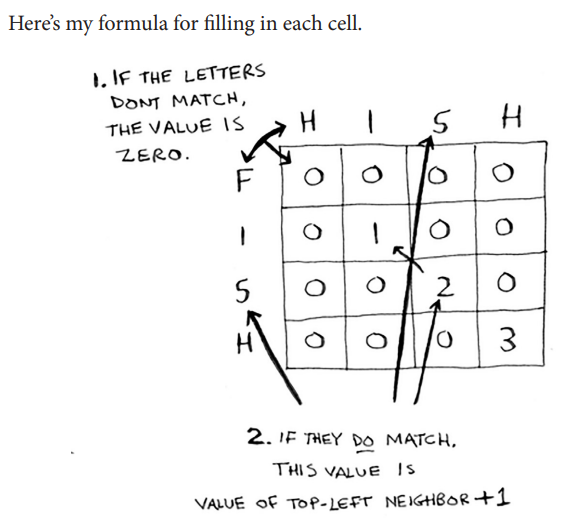 Here's my formula for filling in each cell.
1. IF THE LETTERS
DONT MATCH,
THE VALUE IS
ZERO.
H I S H
F 0 0 0 0
I 0 1 0 0
S 0 0 2 0
H 0 0 0 3
2. IF THEY DO MATCH,
THIS VALUE IS
VALUE OF TOP-LEFT NEIGHBOR +1